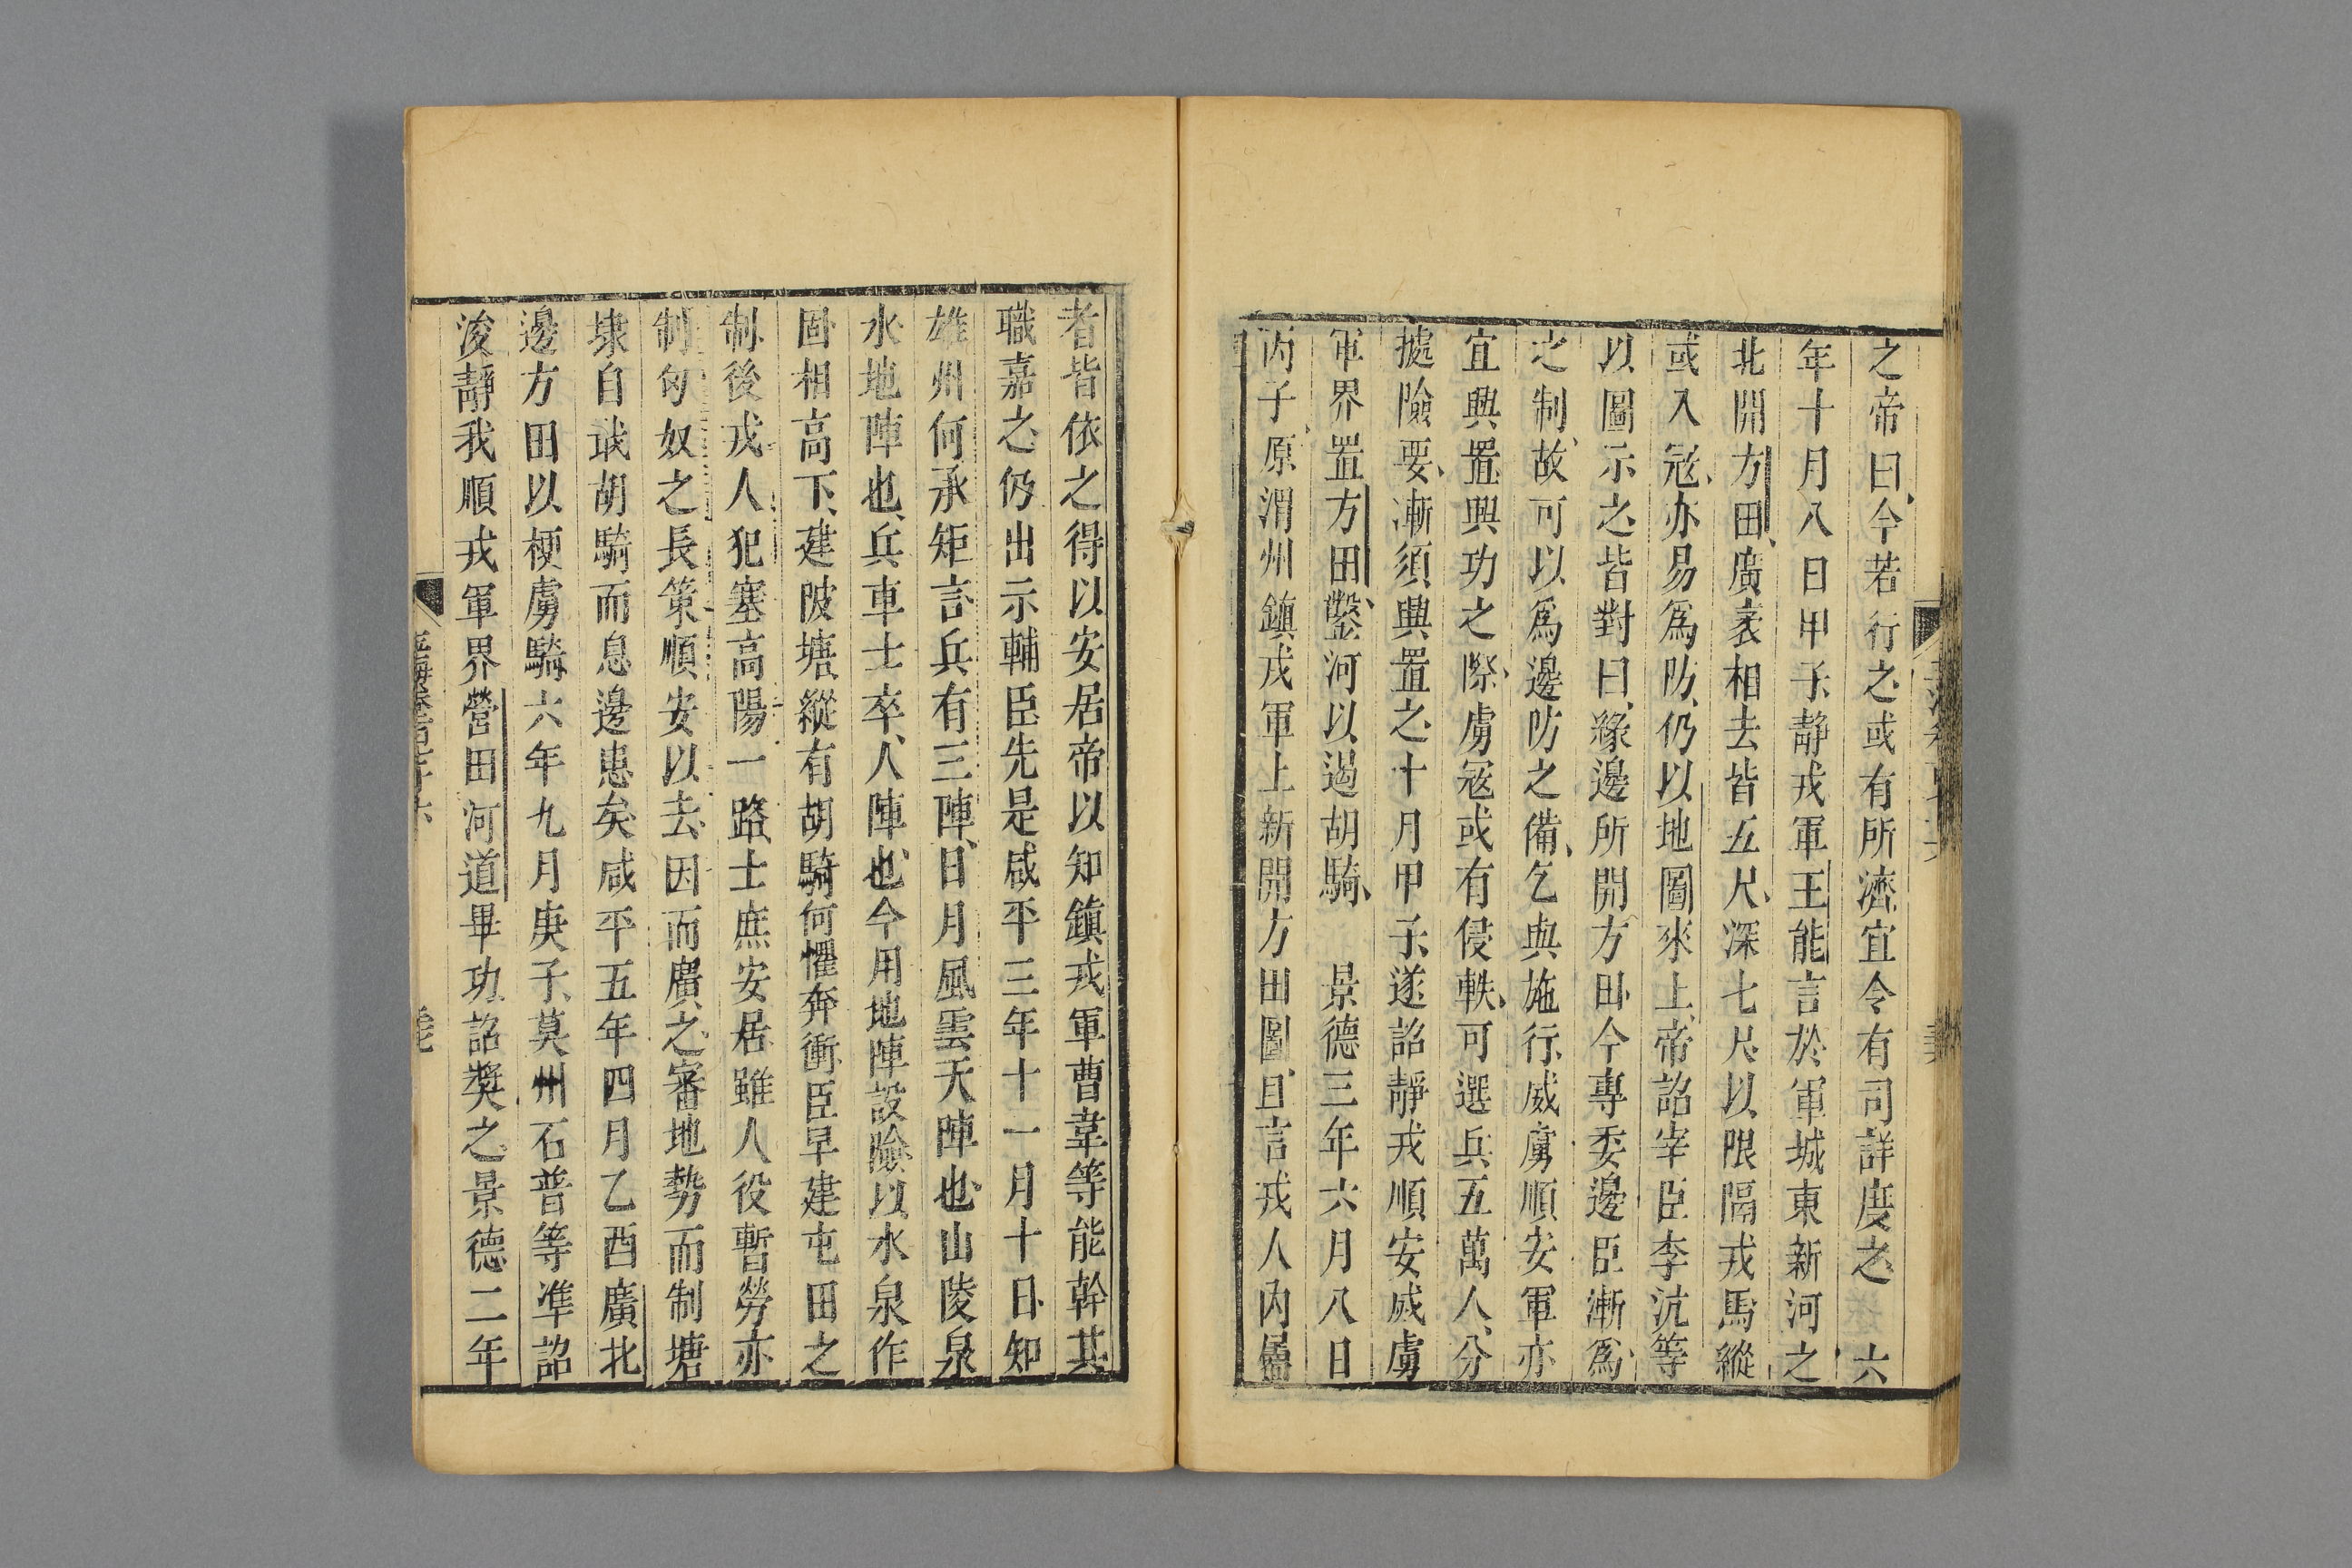 之帝曰今若行之或有所濟宜令有司詳度之 六
年十月八日甲子静戎軍王能言於軍城東新河之
北開方田廣袤相去皆五尺深七尺以限隔戎馬縱
或入冦亦易爲防仍以地圖來上帝詔宰臣李沆等
以圖示之皆對曰緣邊所開方田今專委邊臣漸爲
之制故可以爲邊防之備乞與施行威虜順安軍亦
宜興置興功之際虜冦或有侵軼可選兵五萬人分
據險要漸須興置之十月甲子遂詔靜戎順安威虜
軍界置方田鑿河以遏胡騎 景德三年六月八日
丙子原渭州鎮戎軍上新開方田圖且言戎人内屬
者皆依之得以安居帝以知鎮戎軍曹韋等能幹其
職嘉之仍出示輔臣先是咸平三年十一月十日知
雄州何承矩言兵有三陣日月風雲天陣也山陵泉
水地陣也兵車士卒人陣也今用地陣設險以水泉作
固相高下建陂塘縱有胡騎何懼奔衝臣早建屯田之
制後戎人犯塞高陽一路士庶安居雖人役暫勞亦
制匈奴之長策順安以去因而廣之審地勢而制塘
埭自戢胡騎而息邊患矣咸平五年四月乙酉廣北
邊方田以梗虜騎六年九月庚子莫州石普等準詔
浚靜我順戎軍界營田河道畢功詔奬之景德二年